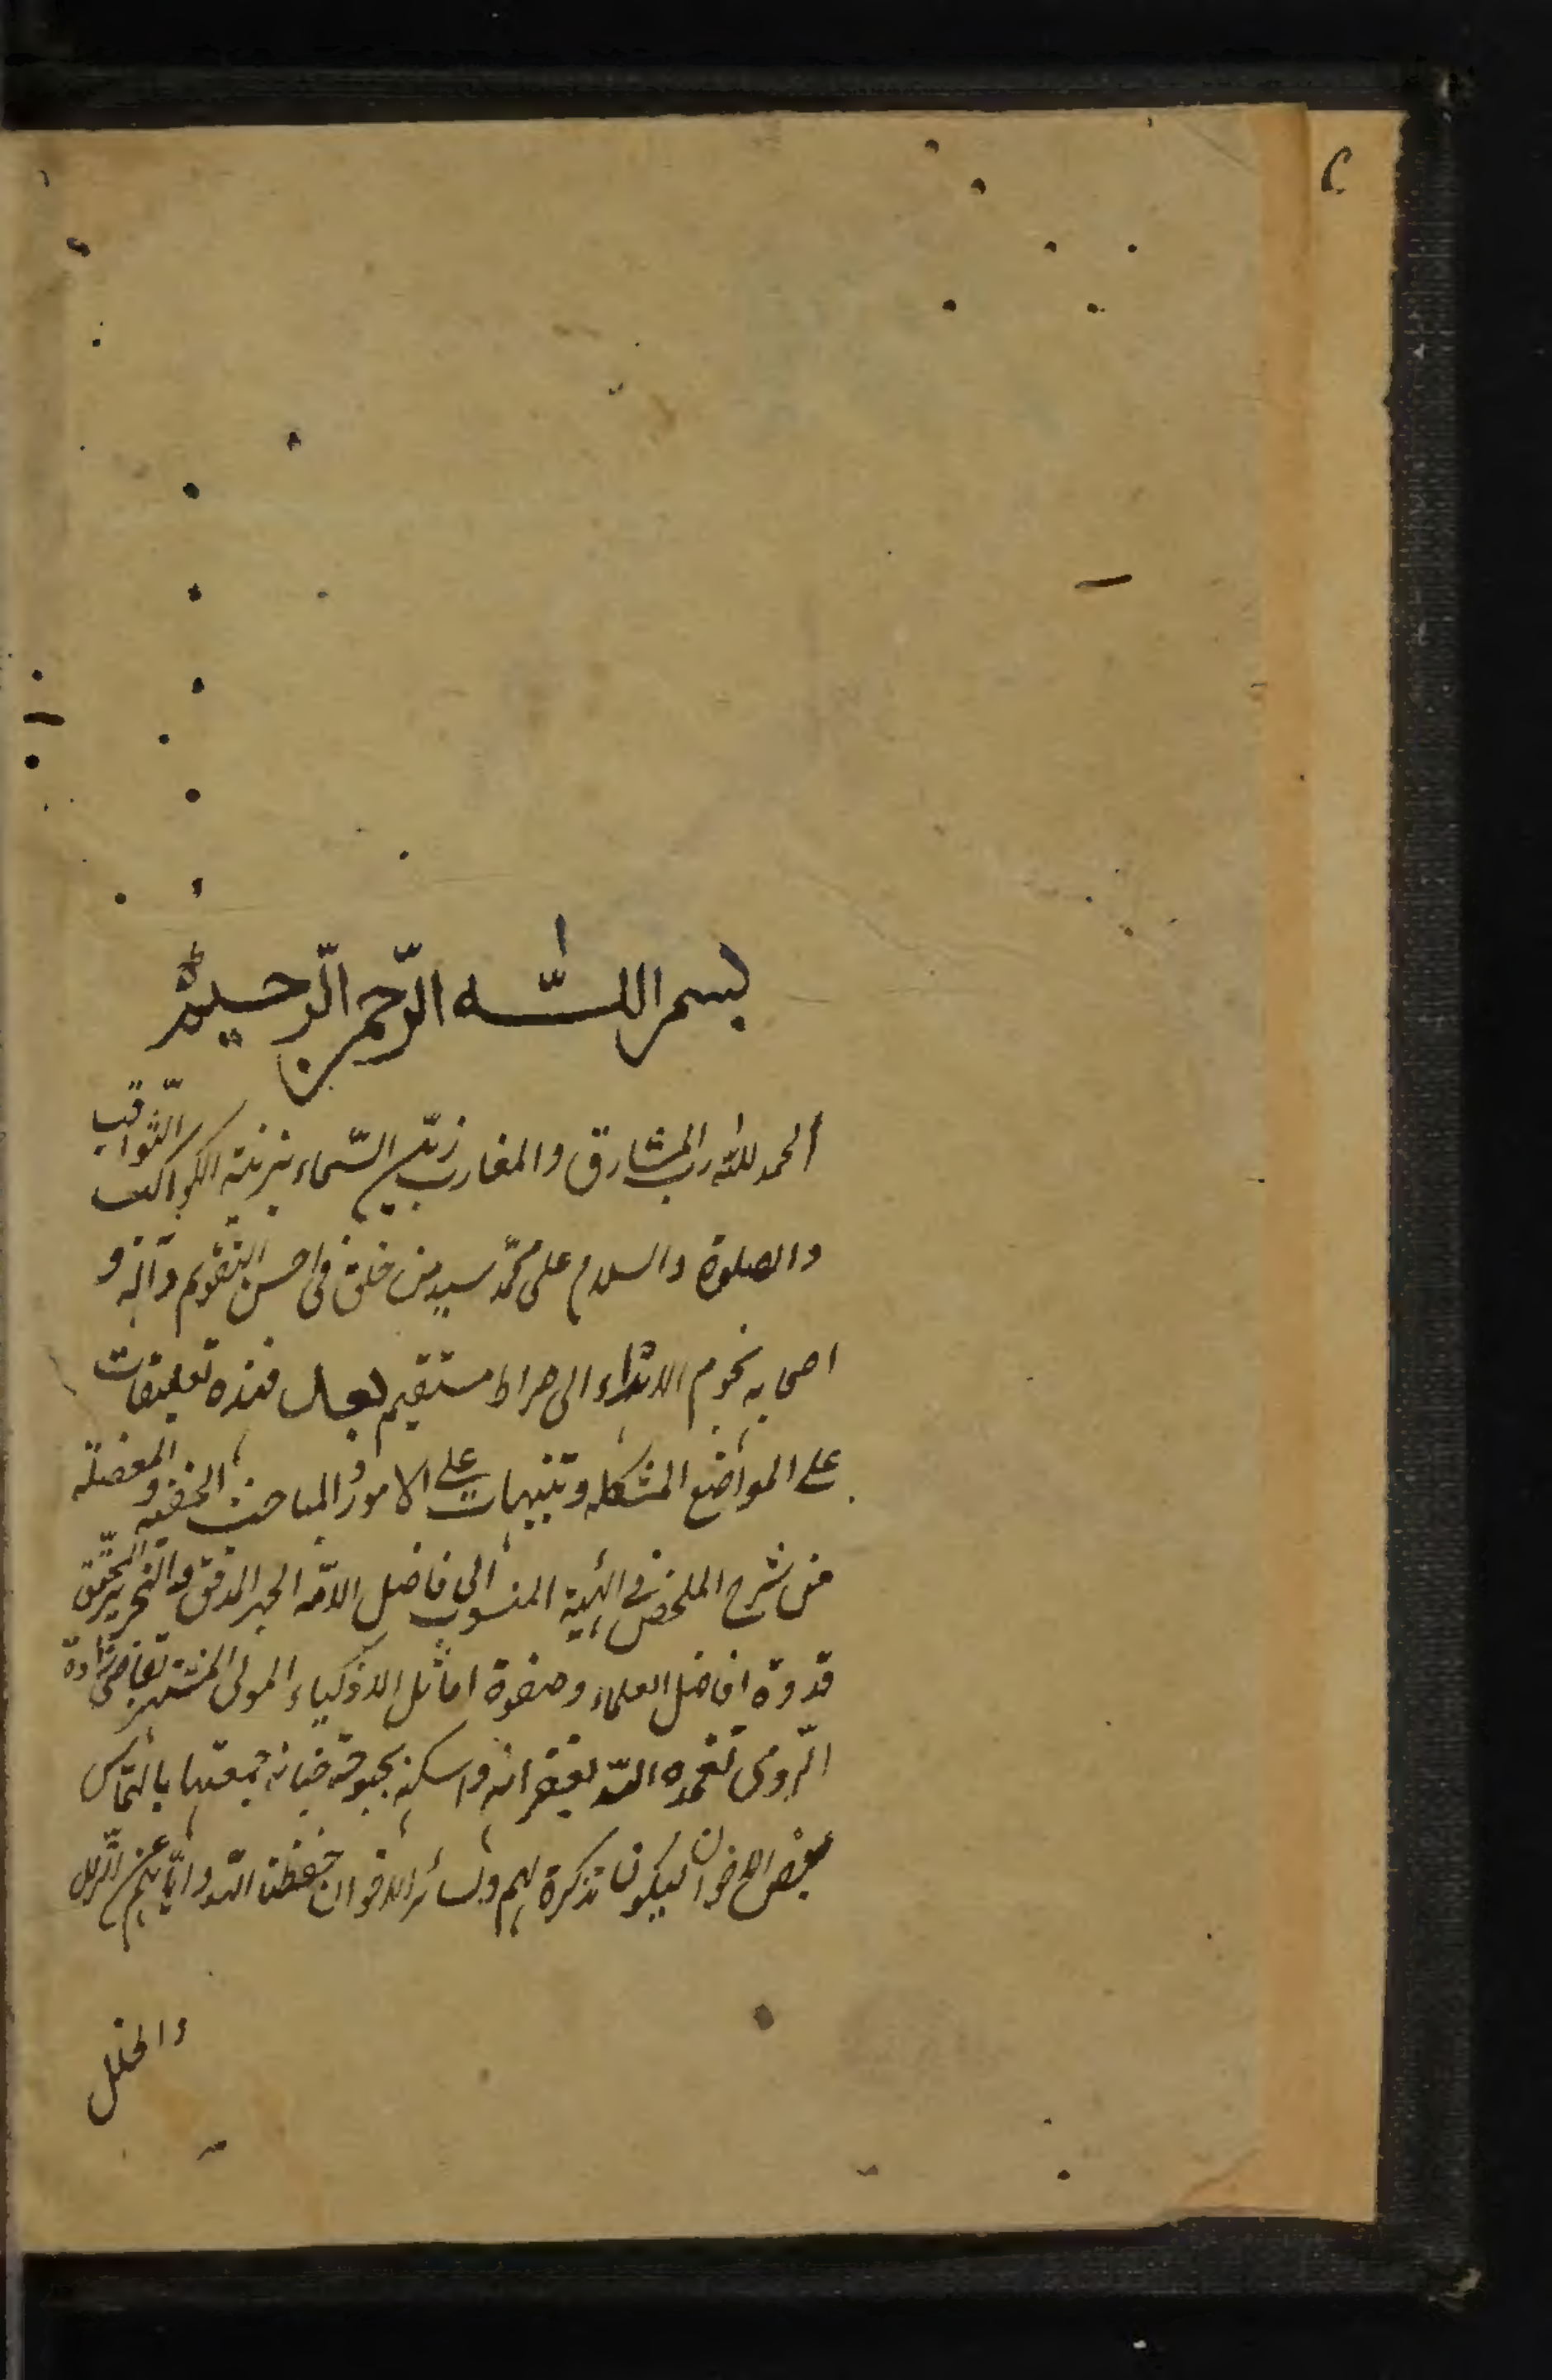 بسم الله الرّحمن الرّحيم
الحمد لله رب المشارق والمغارب زيّن السّماء بزينة الكواكب الثّواقب
والصلوة والسلام على محمّد سيد من خلق في احسن التّقويم وآله و
اصحابه نجوم الاهتداء الى صراط مستقيم وبعد فهذه تعليقات
على المواضع المشكله وتنبيهات على الامور و المباحث الخفيه و المعضلة
من شرح الملخص في الهيئة المنسوب الى فاضل الامّه الحبر المدقق والنحرير المحقّق
قدوة افاضل العلماء وصفوة اماثل الاذكياء المولى المشتهر بقاضي زاده
الرّومي تغمده الله بغفرانه واسكنه بحبوحة جنانه جمعتها بالتماس
بعض الاخوان ليكون تذكرة لهم ولسائر الاخوان حفظنا الله واياهم عن الزّلل
والخلل